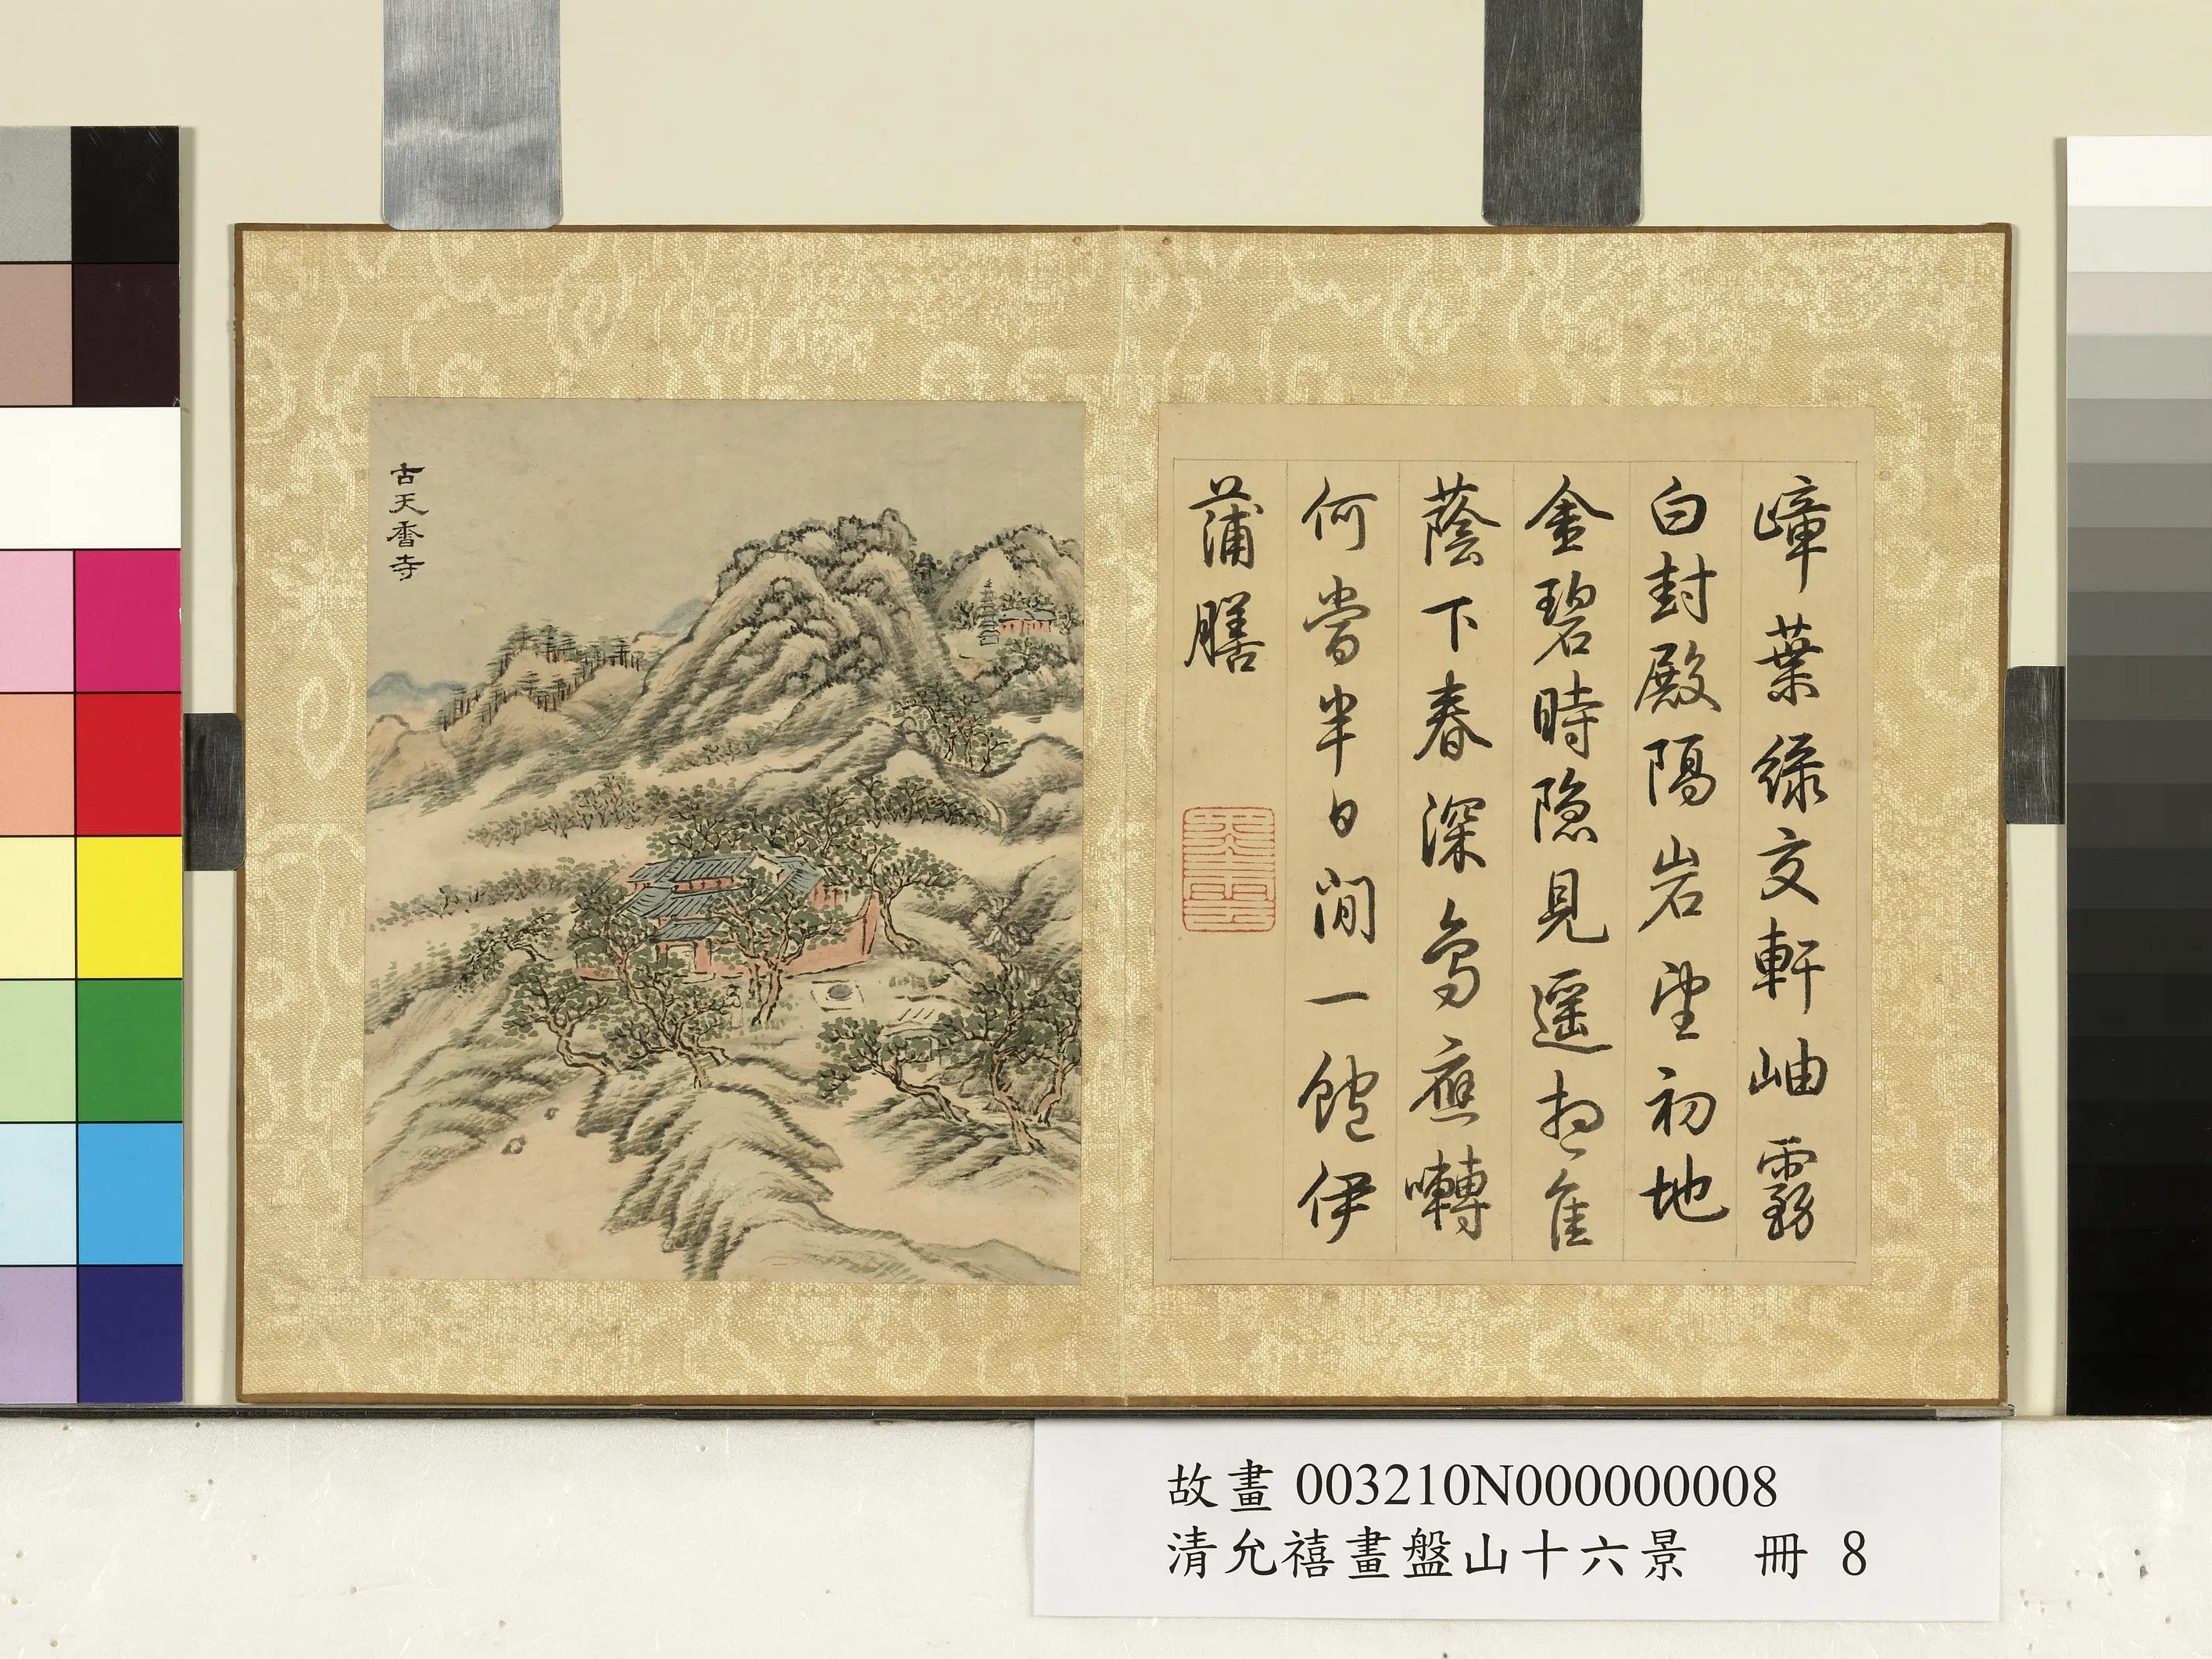 嶂葉綠交軒岫霧
白封殿隔岩望初地
金碧時隱見遥想佳
蔭下春深鳥應囀
何當半日閒一飽伊
蒲膳
古天香寺
故畫 003210N000000008
清允禧畫盤山十六景 冊 8